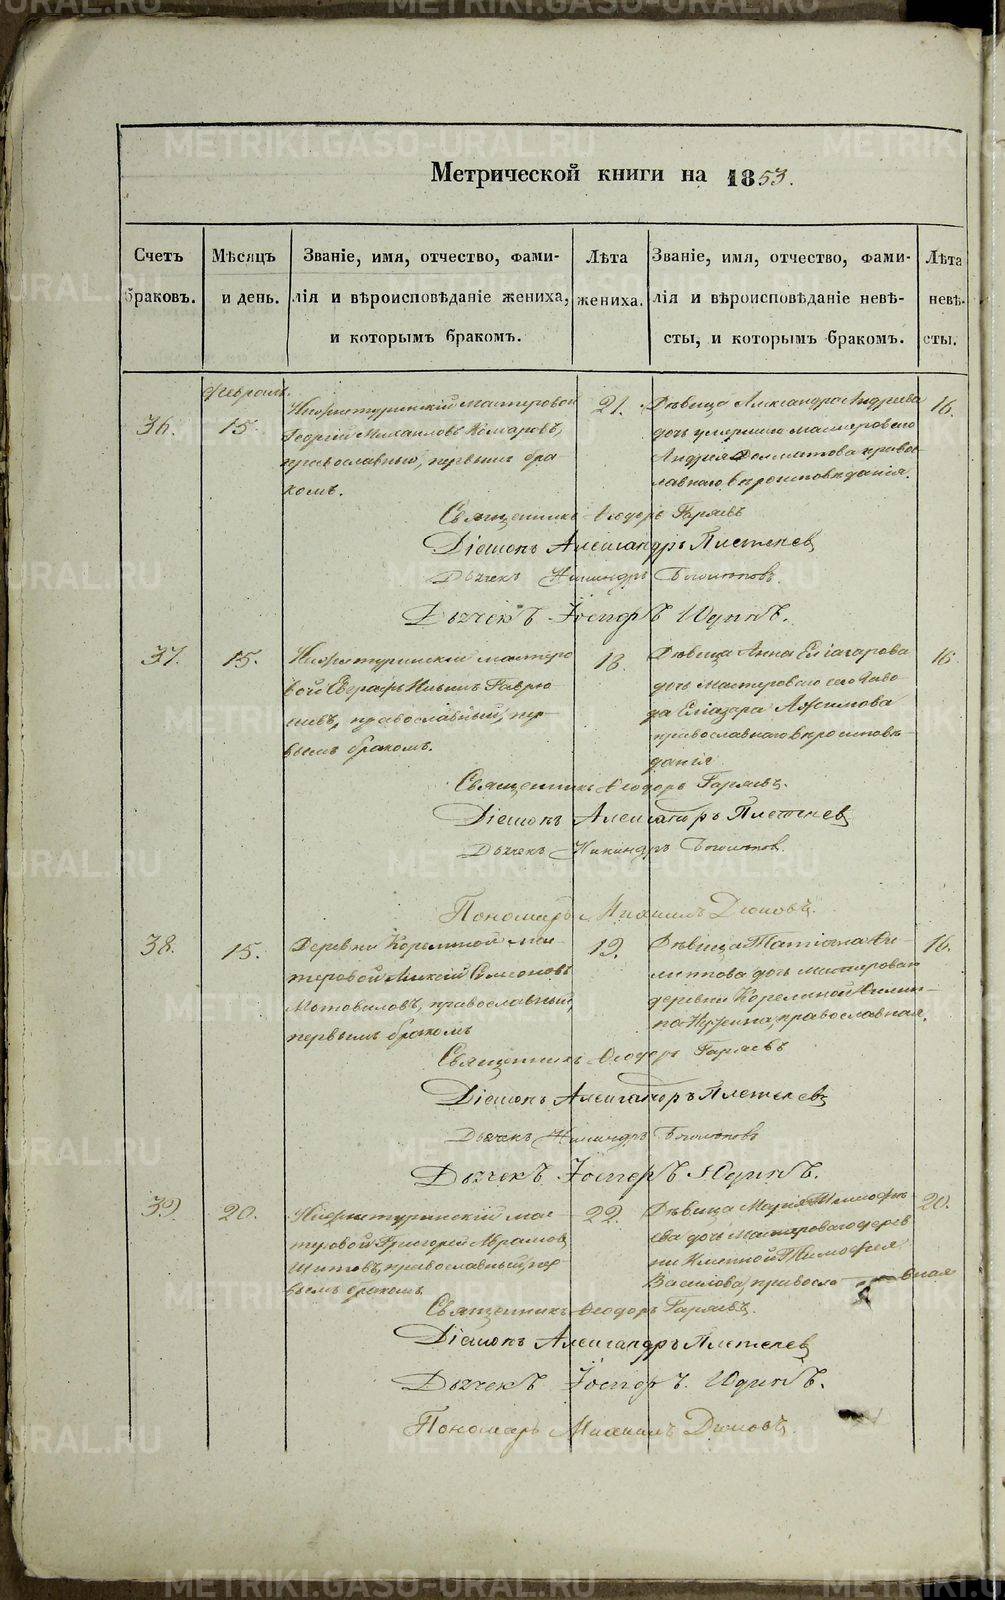 Метрической книги на 1853.
Счетъ браковъ.
Мѣсяцъ и день.
Званіе, имя, отчество, фами-
лія и вѣроисповѣданіе жениха,
и которымъ бракомъ.
Лѣта жениха.
Званіе, имя, отчество, фами-
лія и вѣроисповѣданіе невѣ-
сты, и которымъ бракомъ.
Лѣта невѣ-
сты.
Февраль.
36.
15.
Нижнетуринскій мастеровой
Георгій Михаиловъ Комаровъ,
православный, первымъ бра-
комъ.
21.
Дѣвица Александра Андреева
дочь умершаго мастероваго
Андрея Долматова правос-
лавнаго вѣроисповѣданія.
16.
Священникъ Ѳеодоръ Гаряевъ
Діаконъ Александръ Плетенев
Дьячекъ Никандръ
Дьячекъ Іосифъ Юдинъ.
37.
15.
Нижнетуринскій мастеро
вой
православный, пер-
вымъ бракомъ.
18.
Дѣвица Анна Еліазарова
дочь мастероваго сего заво-
да Еліазара Акимова
православнаго вѣроисповѣ-
данія
16
Священникъ Ѳеодоръ Гаряевъ.
Діаконъ Александръ Плетенев
Дьячекъ Никандръ
Пономарь Михаилъ
38.
15.
Деревни Корелиной мас-
теровой Алексій Симеоновъ
Мотовиловъ, православный,
первымъ бракомъ
19.
Дѣвица Татіана Фи-
липпова дочь мастероваго
деревни Корелиной Филип-
па православная.
16.
Священникъ Ѳеодоръ Гаряевъ
Діаконъ Александръ Плетенев
Дьячекъ Никандръ
Дьячекъ Іосифъ Юдинъ.
39.
20.
Нижнетуринскій мас-
теровой Григорей Абрамов
Шитовъ, православный, пер
вымъ бракомъ.
22.
Дѣвица Марія Тимофѣ-
ева дочь мастероваго дерев
ни Тимофея
Василова, правосла вная
20.
Священникъ Ѳеодоръ Гаряевъ.
Діаконъ Александръ Плетенев
Дьячекъ Іосифъ Юдинъ.
Пономарь Михаилъ
METRIKI.GASO-URAL.RU